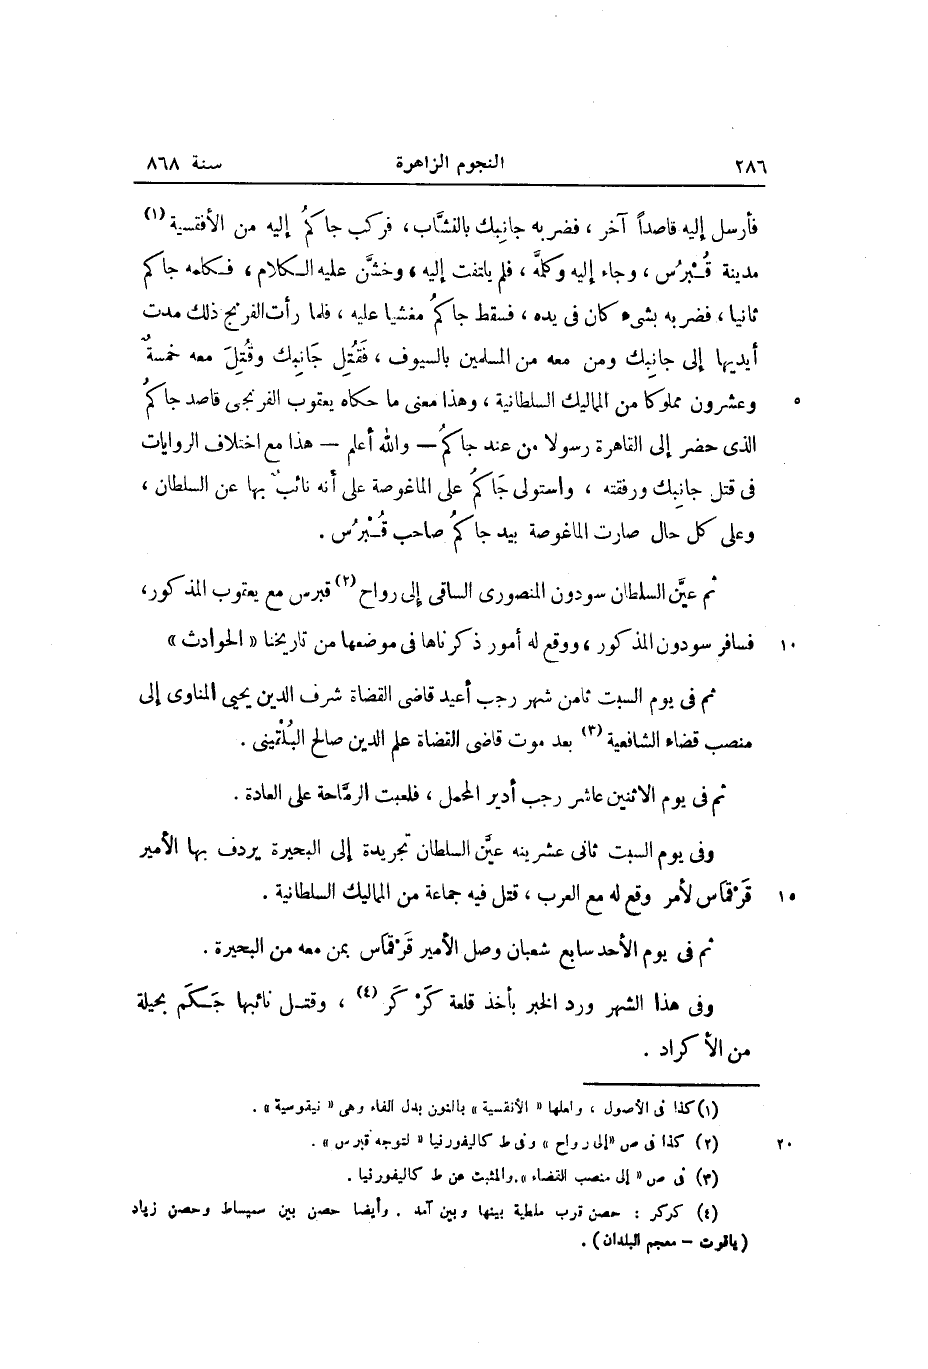 ٢٨٦ النجوم الزاهرة سنة ٨٦٨
فأرسل إليه قاصداً آخر ، فضربه جانبك بالنشَّاب ، فركب جاكمُ إليه من الأفقسية (١)
مدينة قُبْرُس ، وجاء إليه وكلَّمه ، فلم يلتفت إليه ، وخشَّن عليه الكلام ، فكلمه جاكم
ثانيا ، فضربه بشىء كان فى يده ، فسقط جاكمُ مغشيا عليه ، فلما رأت الفرنج ذلك مدت
أيديها إلى جانبك ومن معه من المسلمين بالسيوف ، فَقُتِل جَانِبك وقُتِلَ معه خمسةٌ
٥ وعشرون مملوكا من المماليك السلطانية ، وهذا معنى ما حكاه يعقوب الفرنجى قاصد جاكمُ
الذى حضر إلى القاهرة رسولا من عند جاكمُ — والله أعلم — هذا مع اختلاف الروايات
فى قتل جانِبك ورفقته ، واستولى جَاكمُ على الماغوصة على أنه نائبٌ بها عن السلطان ،
وعلى كل حال صارت الماغوصة بيد جاكمُ صاحب قُبْرُس .
ثم عيَّن السلطان سودون المنصورى الساقى إلى رواح (٢) قبرس مع يعقوب المذكور،
١٠ فسافر سودون المذكور ، ووقع له أمور ذكرناها فى موضعها من تاريخنا « الحوادث »
ثم فى يوم السبت ثامن شهر رجب أعيد قاضى القضاة شرف الدين يحيى المناوى إلى
منصب قضاء الشافعية (٣) بعد موت قاضى القضاة علم الدين صالح البُلْقينى .
ثم فى يوم الاثنين عاشر رجب أدير المحمل ، فلعبت الرمَّاحة على العادة .
وفى يوم السبت ثانى عشرينه عيَّن السلطان تجريدة إلى البحيرة يردف بها الأمير
١٥ قَرْقمَاس لأمر وقع له مع العرب ، قتل فيه جماعة من المماليك السلطانية .
ثم فى يوم الأحد سابع شعبان وصل الأمير قَرْقمَاس بمن معه من البحيرة .
وفى هذا الشهر ورد الخبر بأخذ قلعة كَرْكَر (٤) ، وقتل نائبها جَكَم بحيلة
من الأكراد .
(١) كذا فى الأصول ، ولعلها « الأنقسية » بالنون بدل الفاء وهى « نيقوسية » .
٢٠ (٢) كذا فى ص «إلى رواح » وفى ط كاليفورنيا « لتوجه قبرس » .
(٣) فى ص « إلى منصب القضاء » . والمثبت عن ط كاليفورنيا .
(٤) كركر : حصن قرب ملطية بينها وبين آمد . وأيضا حصن بين سميساط وحصن زياد
(ياقوت – معجم البلدان ) .